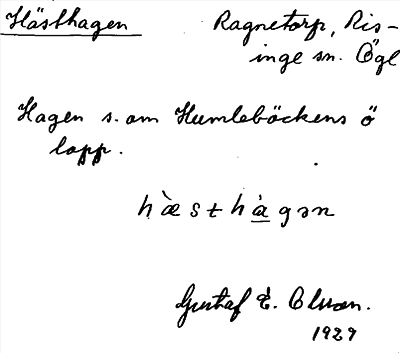 Hästhagen
Ragnetorp, Ris-
inge sn. Ögl
Hagen s. om Humlebäckens ö
lopp.
hὰsthὰgən
Gustaf E. Olsson.
1929